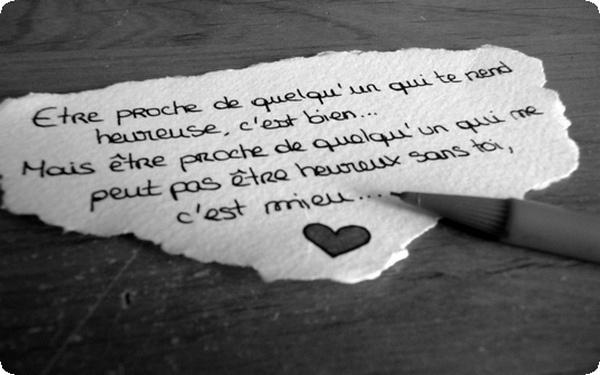 Etre proche de quelqu'un qui te rend
heureuse, c'est bien...
Mais être proche de quelqu'un qui ne
peut pas être heureux sans toi,
c'est mieu...